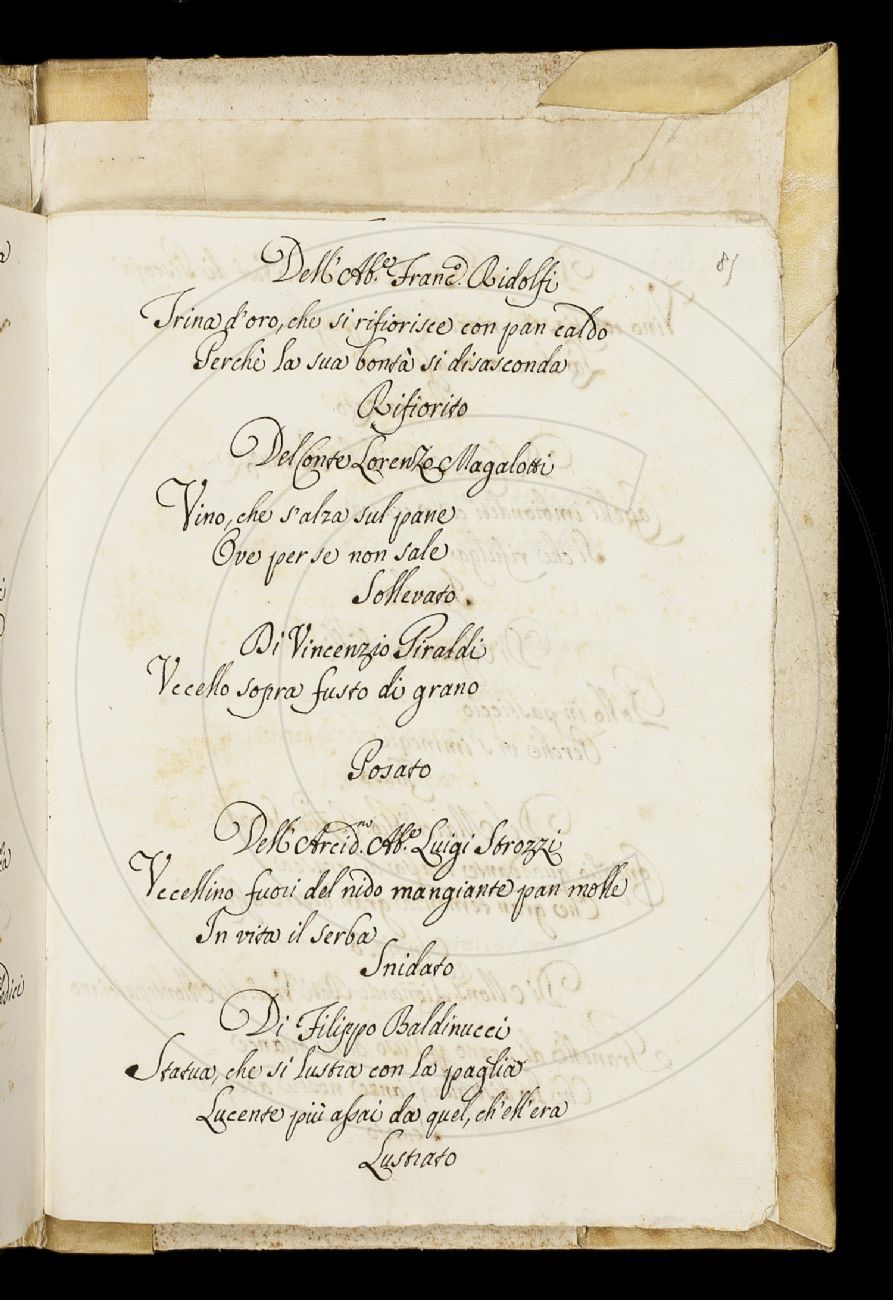 81
Dell' Ab.e Franc.o Ridolfi
Trina d'oro, che si rifiorisce con pan caldo
Perchè la sua bontà si disasconda
Rifiorito
Del Conte Lorenzo Magalotti
Vino, che s'alza sul pane
Ove per se non sale
Sollevato.
Di Vincenzio Piraldi
Vccello sopra fusto di grano
Posato
Dell' Arcid.no Ab.e Luigi Strozzi
Vccellino fuori del nido mangiante pan molle
In vita il serba
Snidato
Di Filippo Baldinucci
Statua, che si lustra con la paglia
Lucente più assai da quel, ch'ell'era
Lustrato